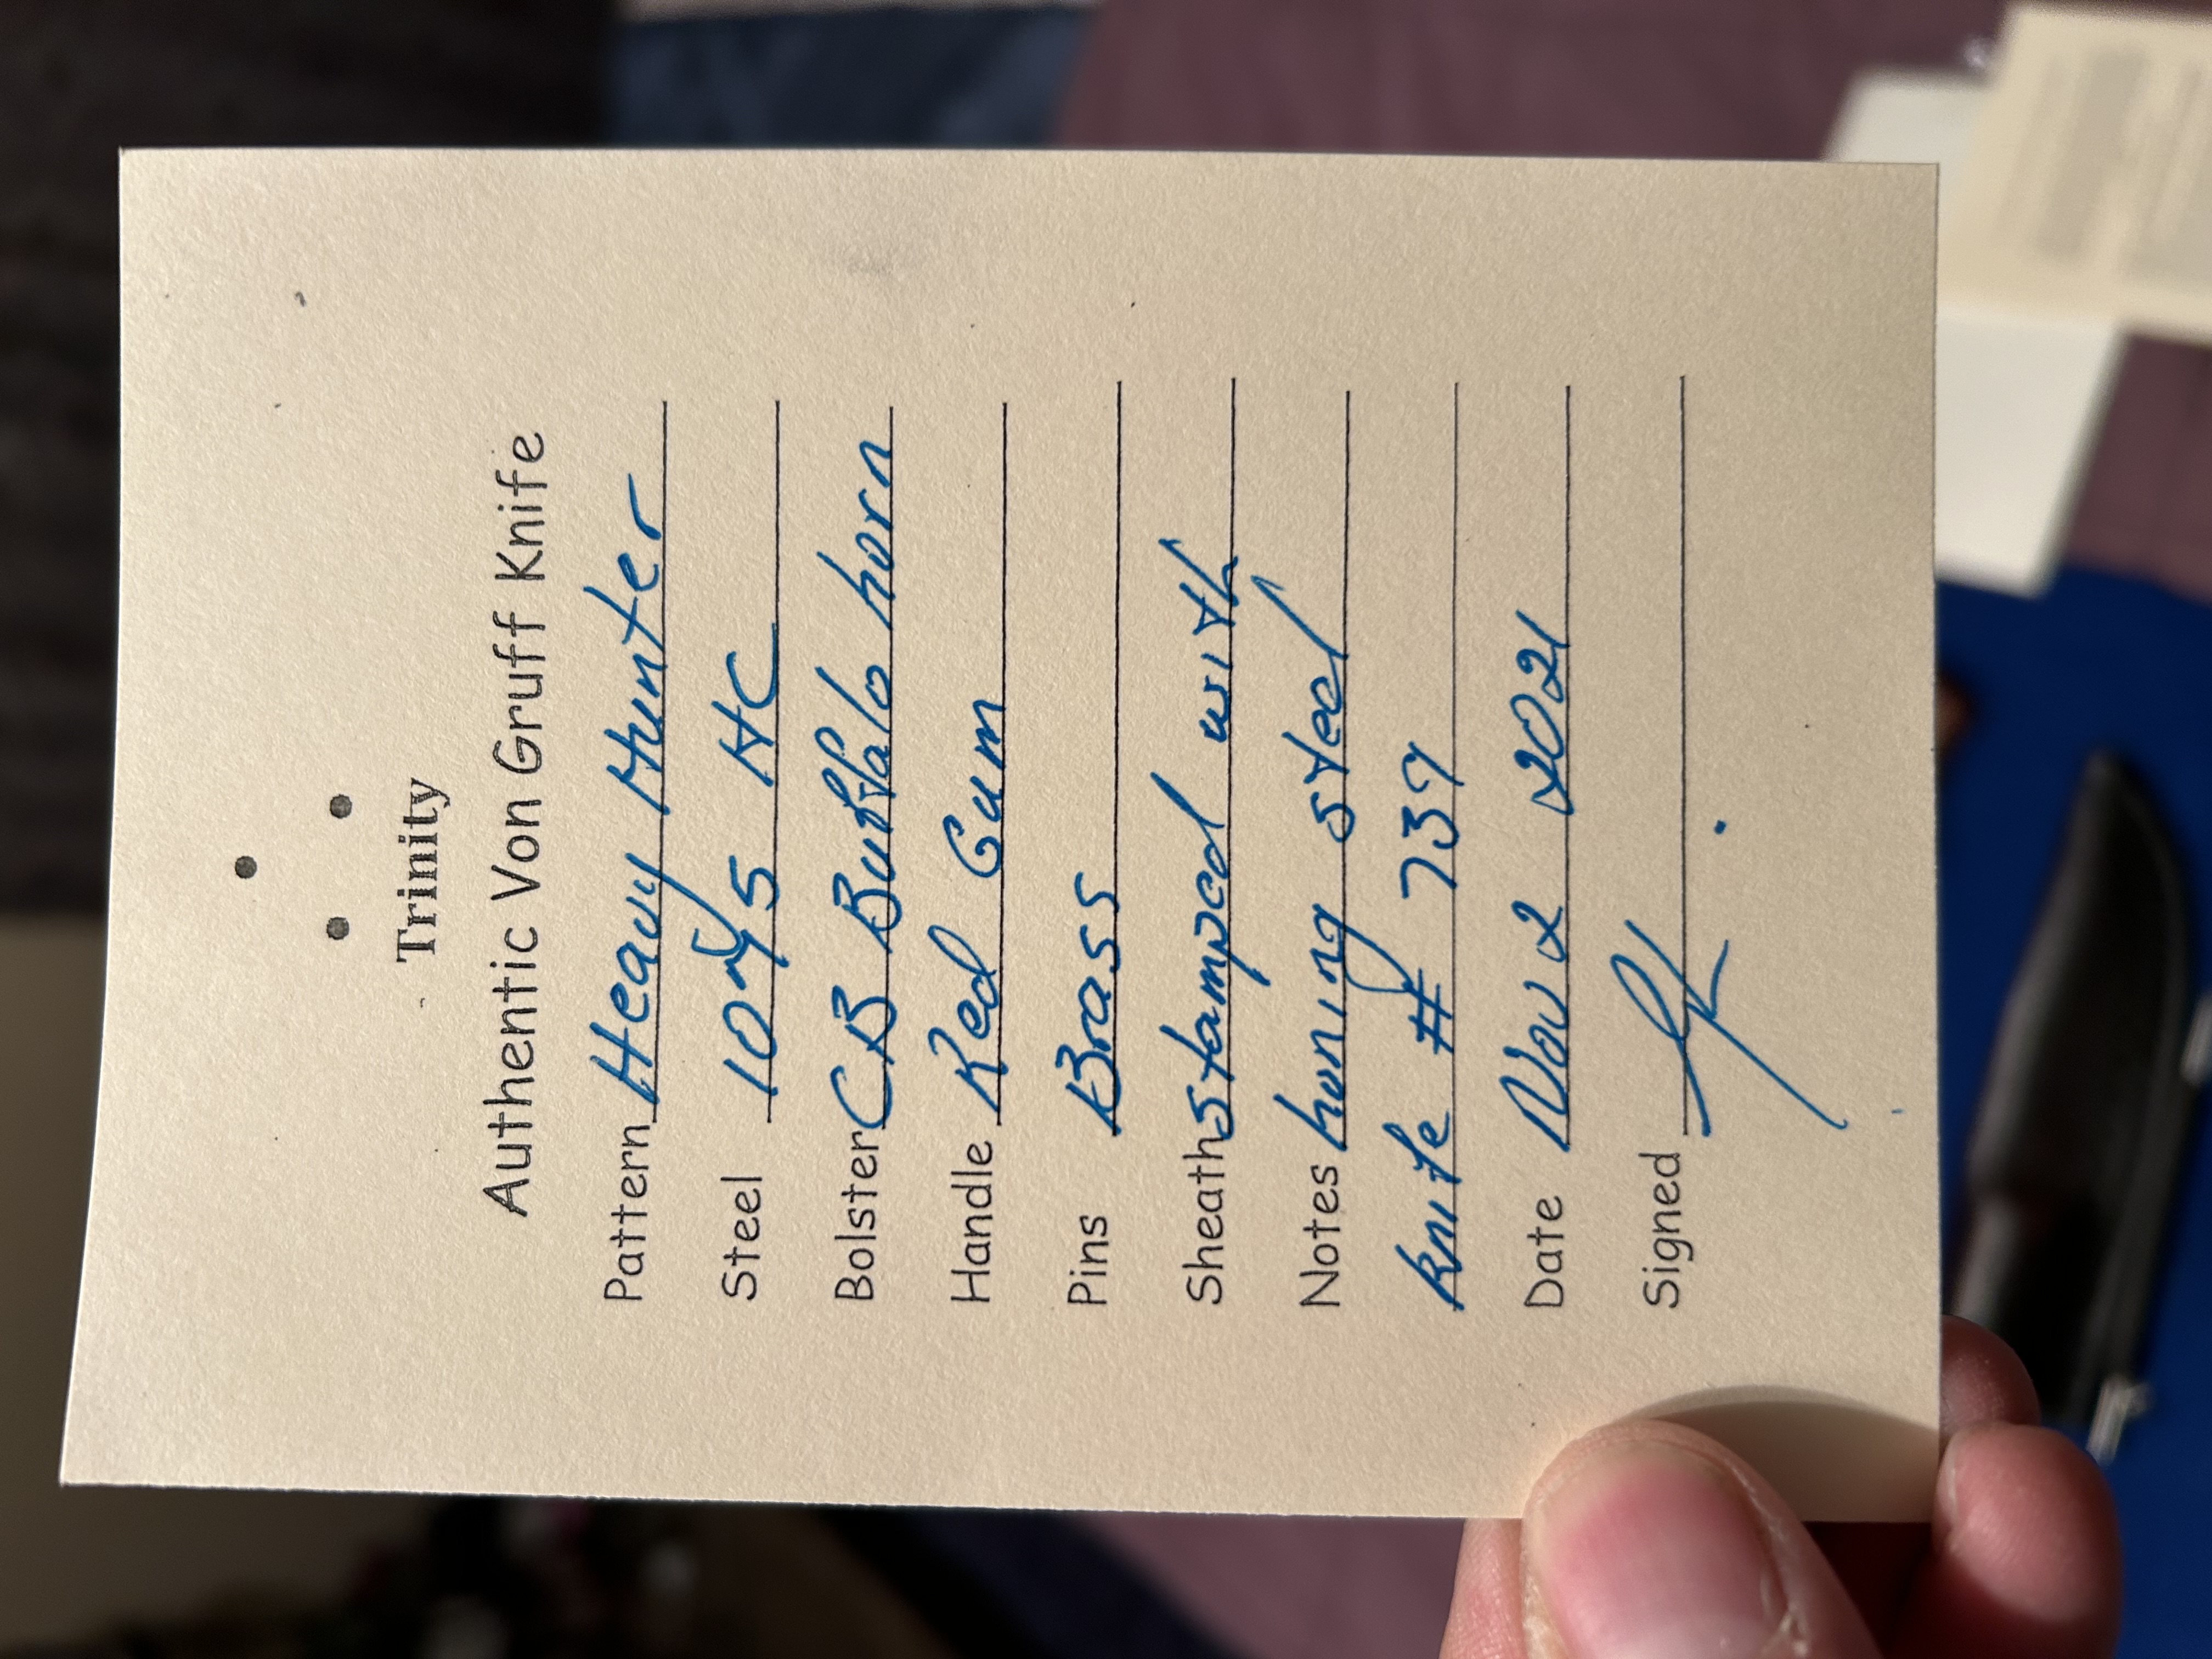 Trinity
Authentic Von Gruff Knife
Pattern Heavy Hunter
Steel 1075 HC
Bolster CB Buffalo horn
Handle Red Gum
Pins Brass
Sheath stamped with
Notes honing steel
knife # 739
Date Nov 2 2021
Signed